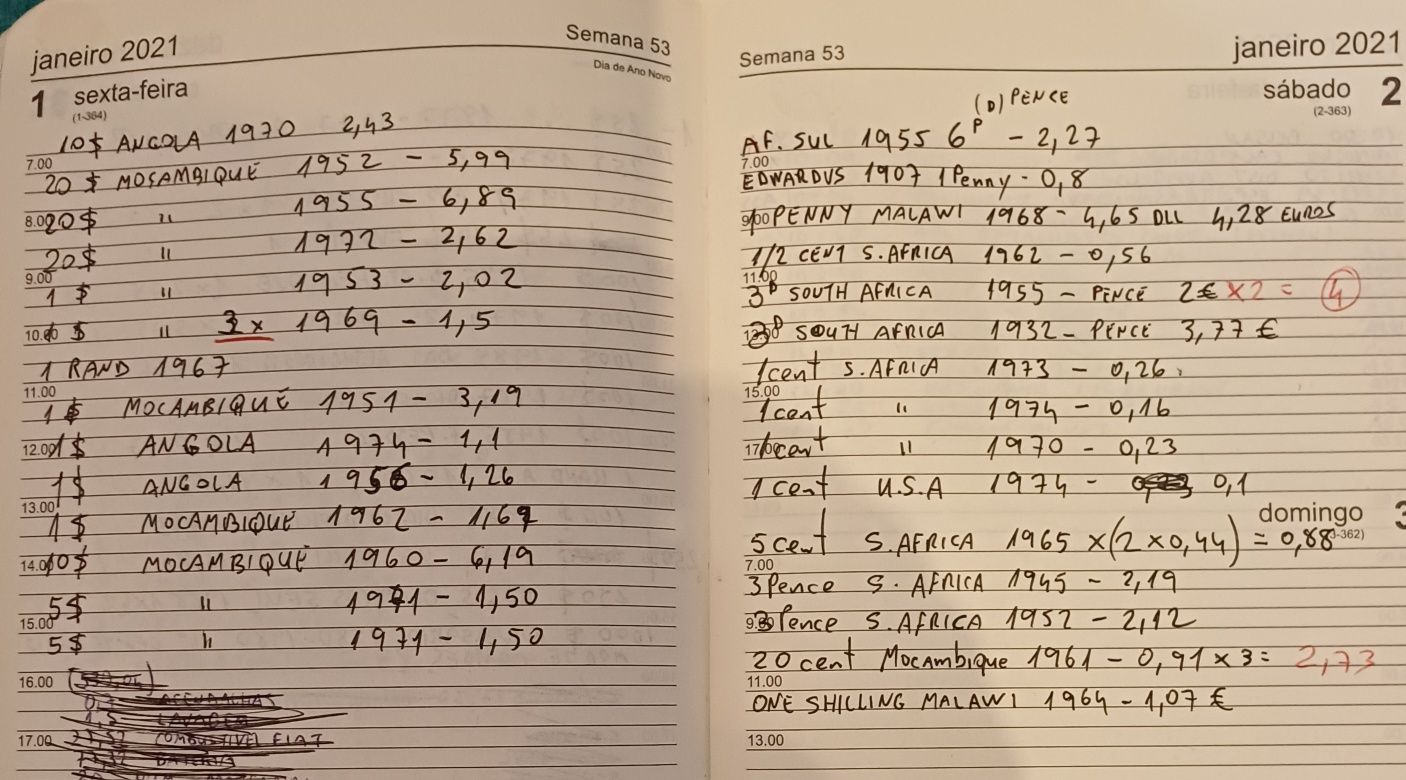 janeiro 2021
Semana 53
Dia de Ano Novo
1 sexta-feira
(1-364)
10$ ANGOLA 1970 2,43
7.00
20 $ MOSAMBIQUE 1952 - 5,99
8.00
20$ " 1955 - 6,89
20$ " 1972 - 2,62
9.00
1 $ " 1953 - 2,02
10.00
$ " 3x 1969 - 1,5
1 RAND 1967
11.00
1$ MOCAMBIQUE 1951 - 3,19
12.00
1$ ANGOLA 1974 - 1,1
1$ ANGOLA 1956 - 1,26
13.00
1$ MOCAMBIQUE 1962 - 1,67
14.00
10$ MOCAMBIQUE 1960 - 6,19
5$ " 1971 - 1,50
15.00
5$ " 1971 - 1,50
16.00
ACENDALHAS
1,5 LAVAGEM
17.00
COMBUSTIVEL FIAT
BATERIA
Semana 53
janeiro 2021
sábado 2
(2-363)
(D) PENCE
AF. SUL 1955 6P - 2,27
7.00
EDWARDVS 1907 1 Penny - 0,8
9.00
PENNY MALAWI 1968 - 4,65 DLL 4,28 EUROS
1/2 CENT S. AFRICA 1962 - 0,56
11.00
3D SOUTH AFRICA 1955 - PENCE 2€ x2 = 4
3D SOUTH AFRICA 1932 - PENCE 3,77 €
1cent S. AFRICA 1973 - 0,26
15.00
1cent " 1974 - 0,16
17.00
cent " 1970 - 0,23
1 cent U.S.A 1974 - 0,1
domingo 3
5 cent S. AFRICA 1965 x(2 x 0,44) = 0,88
7.00
3 Pence S. AFRICA 1945 - 2,19
9.00
3 Pence S. AFRICA 1952 - 2,12
20 cent Mocambique 1961 - 0,91 x 3 = 2,73
11.00
ONE SHILLING MALAWI 1964 - 1,07 €
13.00